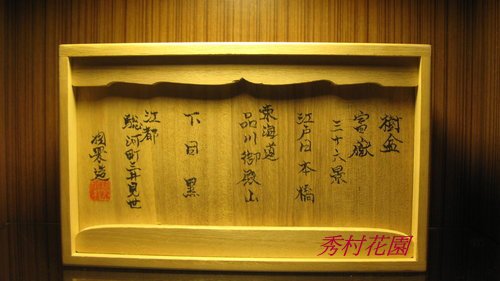 樹盆
富嶽
三十六景
江戸日本橋
東海道
品川御殿山
下目黒
江都
駿河町三井見世
造
秀村花園